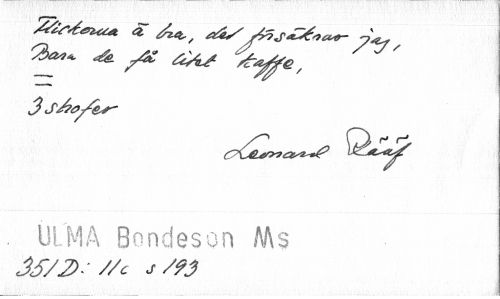 Flickorna ä bra, det försäkrar jag,
Bara de få litet kaffe,
=
3 strofer
Leonard Rääf
ULMA Bondeson Ms
351 D: 11c s 193